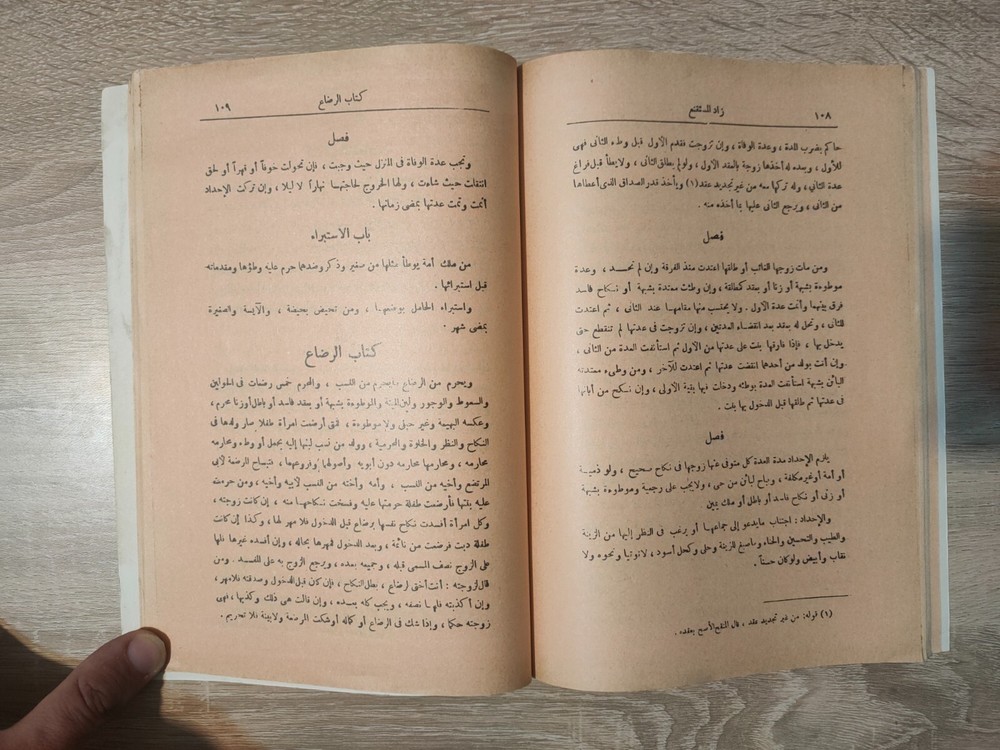 ١٠٨
زاد المستقنع
حاكم بضرب المدة ، وعدة الوفاة ، وإن تزوجت فقدم الأول قبل وطء الثانى فهى
للأول ، وبعده له أخذها زوجة بالعقد الأول ، ولو لم يطلق الثانى ، ولا يطأ قبل فراغ
عدة الثانى ، وله تركها معه من غير تجديد عقد (١) ويأخذ قدر الصداق الذى أعطاها
من الثانى ، ويرجع الثانى عليها بما أخذه منه .
فصل
ومن مات زوجها الغائب أو طلقها اعتدت منذ الفرقة وإن لم تحد ، وعدة
موطوءة بشبهة أو زنا أو بعقد كمطلقة ، وإن وطئت معتدة بشبهة أو نكاح فاسد
فرق بينهما وأتمت عدة الأول . ولا يحتسب منها مقامها عند الثانى ، ثم اعتدت
للثانى ، وتحل له بعقد بعد انقضاء العدتين ، وإن تزوجت فى عدتها لم تنقطع حتى
يدخل بها ، فإذا فارقها بنت على عدتها من الأول ثم استأنفت العدة من الثانى ،
وإن أتت بولد من أحدهما انقضت عدتها ثم اعتدت للآخر ، ومن وطىء معتدته
البائن بشبهة استأنفت العدة بوطئه ودخلت فيها بقية الأولى ، وإن نكح من أبانها
فى عدتها ثم طلقها قبل الدخول بها بنت .
فصل
يلزم الإحداد مدة العدة كل متوفى عنها زوجها فى نكاح صحيح ، ولو ذمية
أو أمة أو غير مكلفة ، ويباح لبائن من حى ، ولا يجب على رجعية وموطوءة بشبهة
أو زنى أو نكاح فاسد أو باطل أو ملك يمين .
والإحداد : اجتناب ما يدعو إلى جماعها أو يرغب فى النظر إليها من الزينة
والطيب والتحسين والحناء وما صبغ للزينة وحلى وكحل أسود ، لا توتيا ونحوه ولا
نقاب وأبيض ولو كان حسناً .
(١) قوله: من غير تجديد عقد ، قال المنقح الأصح بعقد .
كتاب الرضاع
١٠٩
فصل
وتجب عدة الوفاة فى المنزل حيث وجبت ، فإن تحولت خوفاً أو قهراً أو لحق
انتقلت حيث شاءت ، ولها الخروج لحاجتها نهاراً لا ليلا ، وإن تركت الإحداد
أثمت وتمت عدتها بمضى زمانها .
باب الاستبراء
من ملك أمة يوطأ مثلها من صغير وذكر وضدهما حرم عليه وطؤها ومقدماته
قبل استبرائها .
واستبراء الحامل بوضعها ، ومن تحيض بحيضة ، والآيسة والصغيرة
بمضى شهر .
كتاب الرضاع
ويحرم من الرضاع ما يحرم من النسب ، والمحرم خمس رضعات فى الحولين
والسعوط والوجور ولبن الميتة والموطوءة بشبهة أو بعقد فاسد أو باطل أو زنا محرم ،
وعكسه البهيمة وغير حبلى ولا موطوءة ، فمتى أرضعت امرأة طفلا صار ولدها فى
النكاح والنظر والخلوة والمحرمية ، وولد من نسب لبنها إليه بحمل أو وطء ومحارمه
محارمه ، ومحارمها محارمه دون أبويه وأصولهما وفروعهما ، فتباح المرضعة لأبى
المرتضع وأخيه من النسب ، وأمه وأخته من النسب لأبيه وأخيه ، ومن حرمت
عليه بنتها فأرضعت طفلة حرمتها عليه وفسخت نكاحها منه ، إن كانت زوجته ،
وكل امرأة أفسدت نكاح نفسها برضاع قبل الدخول فلا مهر لها ، وكذا إن كانت
طفلة دبت فرضعت من نائمة ، وبعد الدخول فمهرها بحاله ، وإن أفسده غيرها فلها
على الزوج نصف المسمى قبله ، وجميعه بعده ، ويرجع الزوج به على المفسد . ومن
قال لزوجته : أنت أختى لرضاع ، بطل النكاح ، فإن كان قبل الدخول وصدقته فلا مهر ،
وإن أكذبته فلها نصفه ، ويجب كله بعده ، وإن قالت هى ذلك وكذبها ، فهى
زوجته حكما ، وإذا شك فى الرضاع أو كماله أو شكت المرضعة ولا بينة فلا تحريم .